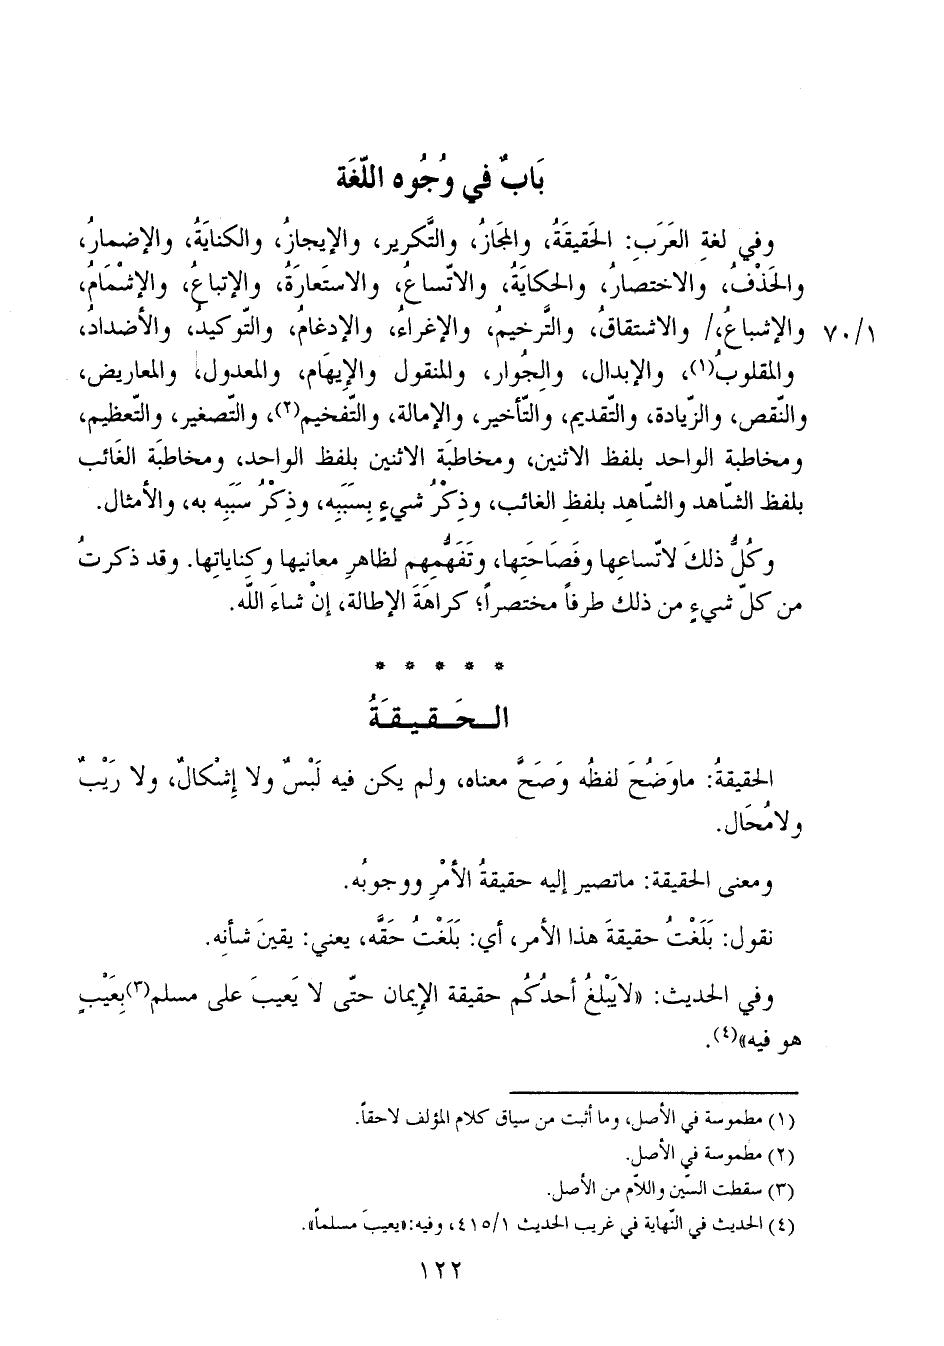 بَابٌ في وُجُوه اللّغَة
وفي لغةِ العَرَب: الحَقيقةُ، والمجَازُ، والتَّكرير، والإيجازُ، والكنايَةُ، والإضمارُ،
والحَذْفُ، والاختصارُ، والحكايَةُ، والاتّساعُ، والاستَعارَةُ، والإتباعُ، والإشْمَامُ،
٧٠/١ والإشباعُ،/ والاشتقاقُ، والتَّرخيمُ، والإغراءُ، والإدغامُ، والتّوكيدُ، والأضدادُ،
والمقلوبُ(١)، والإبدال، والجُوار، والمنقول والإيهَام، والمعدول، والمعاريض،
والنّقص، والزّيادة، والتّقديم، والتّأخير، والإمالة، والتّفخيم(٢)، والتّصغير، والتّعظيم،
ومخاطبة الواحد بلفظ الاثنين، ومخاطبَة الاثنين بلفظ الواحد، ومخاطبَة الغَائب
بلفظ الشّاهد والشّاهِد بلفظِ الغائب، وذِكْرُ شيءٍ بِسَبَبِه، وذِكْرُ سَبَبِه به، والأمثال.
وكُلُّ ذلكَ لاتّساعِها وفَصَاحَتِها، وتَفَهُّمِهم لظاهرِ معانيها وكناياتِها. وقد ذكرتُ
من كلّ شيءٍ من ذلك طرفاً مختصراً؛ كراهَةَ الإطالة، إنْ شاءَ اللّه.
* * * * *
الـحَـقـيـقـةُ
الحقيقةُ: ماوَضُحَ لفظُه وَصَحَّ معناه، ولم يكن فيه لَبْسٌ ولا إشْكالٌ، ولا رَيْبٌ
ولامُحَال.
ومعنى الحقيقة: ماتصير إليه حقيقةُ الأمْرِ ووجوبُه.
نقول: بَلَغْتُ حقيقةَ هذا الأمر، أي: بَلَغْتُ حَقَّه، يعني: يقينَ شأنِه.
وفي الحديث: «لايَبْلغُ أحدُكُم حقيقة الإيمان حتّى لا يَعيبَ على مسلم(٣)بِعَيْبٍ
هو فيه»(٤).
(١) مطموسة في الأصل، وما أثبت من سياق كلام المؤلف لاحقاً.
(٢) مطموسة في الأصل.
(٣) سقطت السّين واللاّم من الأصل.
(٤) الحديث في النّهاية في غريب الحديث ٤١٥/١، وفيه:«يعيبَ مسلماً».
١٢٢